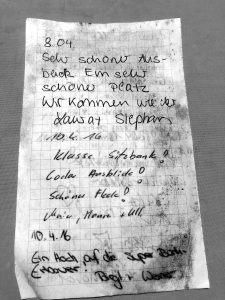 8.04.
Sehr schöner Aus-
blick Ein sehr
schöner Platz
Wir kommen wieder
Stephan
10.4.16
Klasse Sitzbank!
Cooler Ausblick!
Schöner Fleck!
10.4.16
Ein Hoch auf die Super Bank
Erbauer!